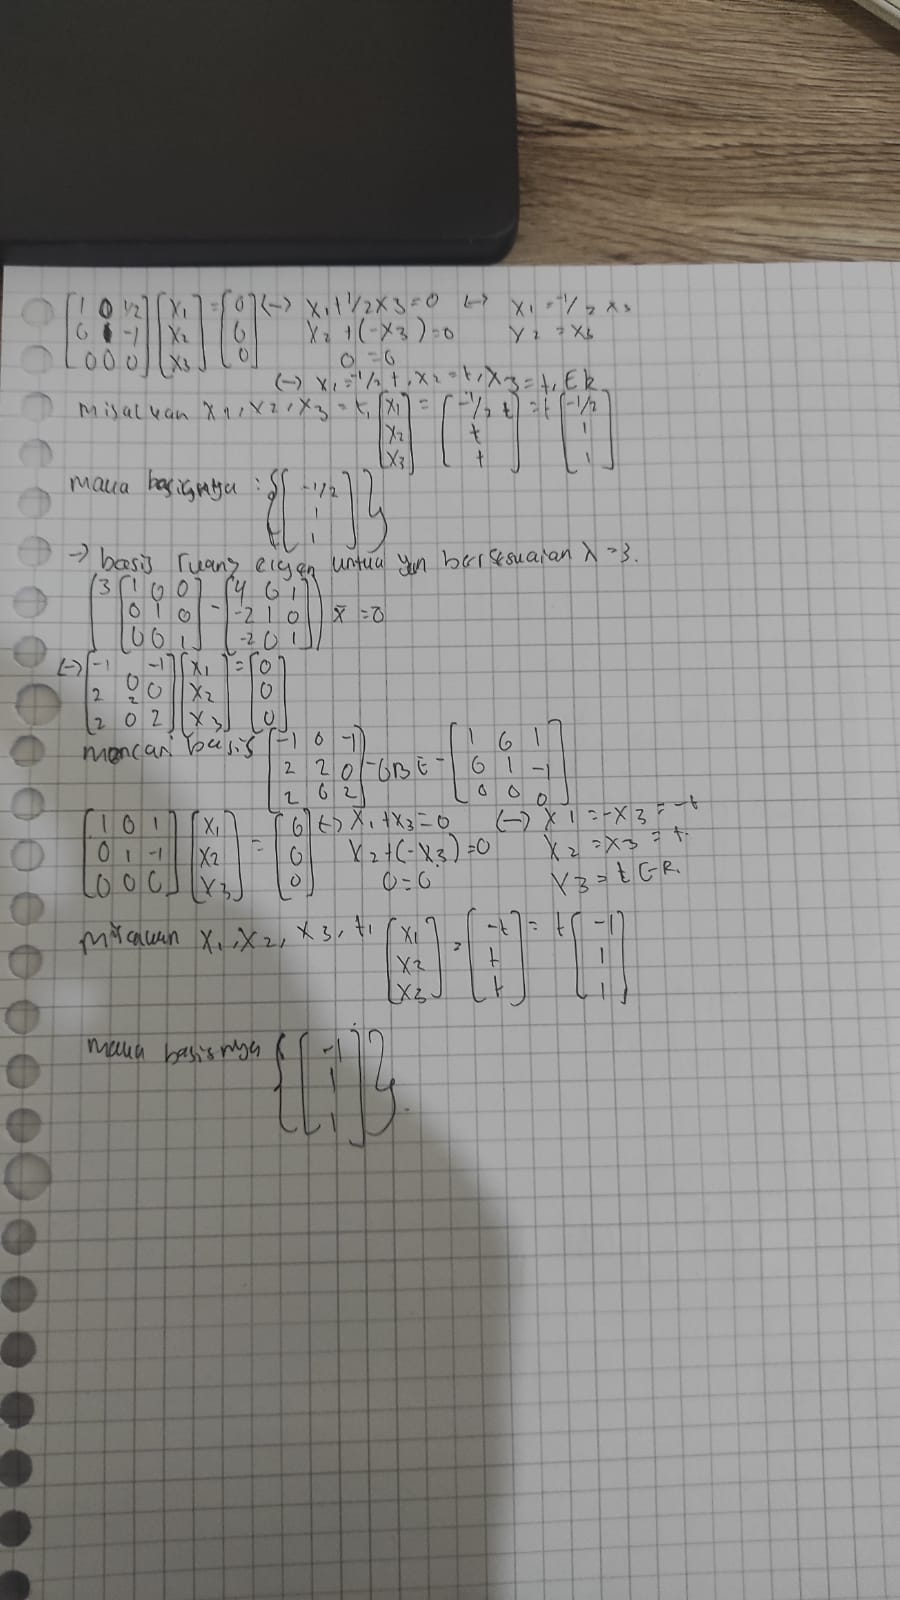 [1 0 1/2; 0 1 -1; 0 0 0] [x1; x2; x3] = [0; 0; 0] <-> x1 + 1/2 x3 = 0 <-> x1 = -1/2 x3
x2 + (-x3) = 0 x2 = x3
0 = 0
<-> x1 = -1/2 t, x2 = t, x3 = t, ∈ R
misalkan x1, x2, x3 = t, [x1; x2; x3] = [-1/2 t; t; t] = t [-1/2; 1; 1]
maka basisnya : {[-1/2; 1; 1]}
-> basis ruang eigen untuk yan bersesuaian λ = 3.
(3 [1 0 0; 0 1 0; 0 0 1] - [4 0 1; -2 1 0; -2 0 1]) x̄ = 0
<-> [-1 0 -1; 2 2 0; 2 0 2] [x1; x2; x3] = [0; 0; 0]
mencari basis [-1 0 -1; 2 2 0; 2 0 2] - OBE - [1 0 1; 0 1 -1; 0 0 0]
[1 0 1; 0 1 -1; 0 0 0] [x1; x2; x3] = [0; 0; 0] <-> x1 + x3 = 0 <-> x1 = -x3 = -t
x2 + (-x3) = 0 x2 = x3 = t
0 = 0 x3 = t ∈ R.
misalkan x1, x2, x3, t, [x1; x2; x3] = [-t; t; t] = t [-1; 1; 1]
maka basisnya {[-1; 1; 1]}.